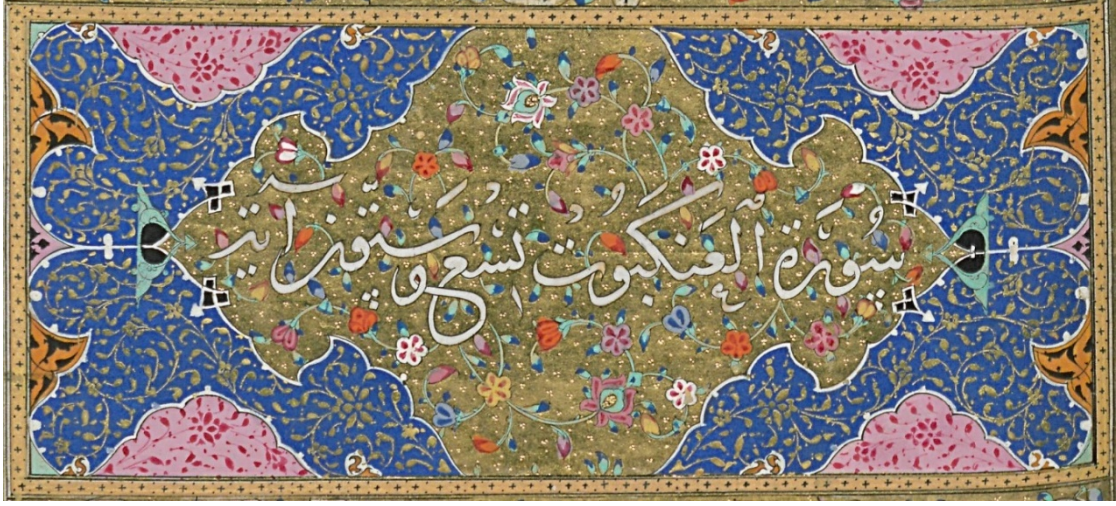 سُورَة العَنكبُوت تِسْعٌ وَسِتّون اٰية